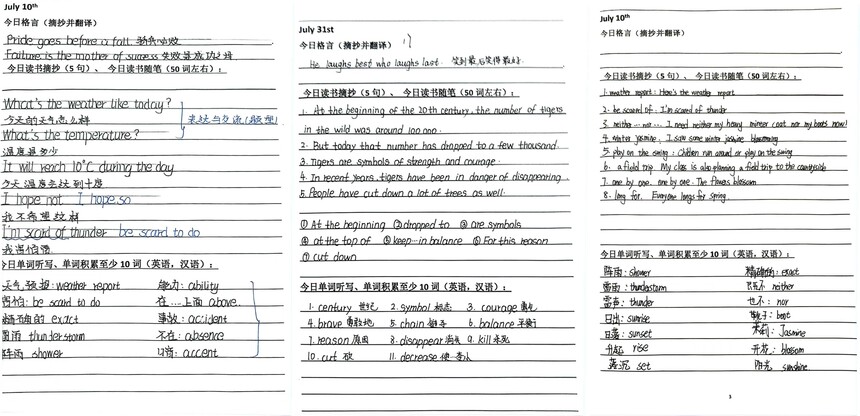 July 10th
今日格言（摘抄并翻译）
Pride goes before a fall. 骄兵必败
Failure is the mother of success 失败是成功之母
今日读书摘抄（5 句）、 今日读书随笔（50 词左右）：
What's the weather like today?
今天的天气怎么样
What's the temperature?
温度是多少
It will reach 10°C during the day
今天温度会达到十度
I hope not I hope so
我不希望这样
I'm scard of thunder be scard to do
我害怕雷
今日单词听写、单词积累至少 10 词（英语，汉语）：
天气预报: weather report 能力: ability
害怕: be scard to do 在…上面 above
精确的 exact 事故: accident
雷雨 thunderstorm 不在: absence
阵雨 shower 口音: accent
July 31st
今日格言（摘抄并翻译）
He laughs best who laughs last. 笑到最后笑得最好.
今日读书摘抄（5 句）、 今日读书随笔（50 词左右）：
1. At the beginning of the 20th century, the number of tigers
in the wild was around 100 000.
2. But today that number has dropped to a few thousand.
3. Tigers are symbols of strength and courage.
4. In recent years, tigers have been in danger of disappearing.
5. People have cut down a lot of trees as well.
① At the beginning ② dropped to ③ are symbols
④ at the top of ⑤ keep…in balance ⑥ For this reason
⑦ cut down
今日单词听写、单词积累至少 10 词（英语，汉语）：
1. century 世纪 2. symbol 标志 3. courage 勇气
4. brave 勇敢地 5. chain 链子 6. balance 平衡
7. reason 原因 8. disappear 消失 9. kill 杀死
10. cut 砍 11. decrease
July 10th
今日格言（摘抄并翻译）
今日读书摘抄（5 句）、 今日读书随笔（50 词左右）：
1. weather report: Here's the weather report
2. be scared of. I'm scared of thunder
3. neither… nor…. I need neither my heavy winter coat nor my boots now!
4. winter jasmine, I saw some winter jasmine blossoming
5. play on the swing: Children run around or play on the swing
6. a field trip My class is also planning a field trip to the countryside
7. one by one. one by one. The flowers blossom
8. long for. Everyone longs for spring.
今日单词听写、单词积累至少 10 词（英语，汉语）：
阵雨: shower 精确的: exact
雷雨: thunderstorm neither
雷声: thunder 也不: nor
日出: sunrise 靴子: boot
日落: sunset 茉莉: Jasmine
升起 rise 开花: blossom
落沉 set 阳光 sunshine
3